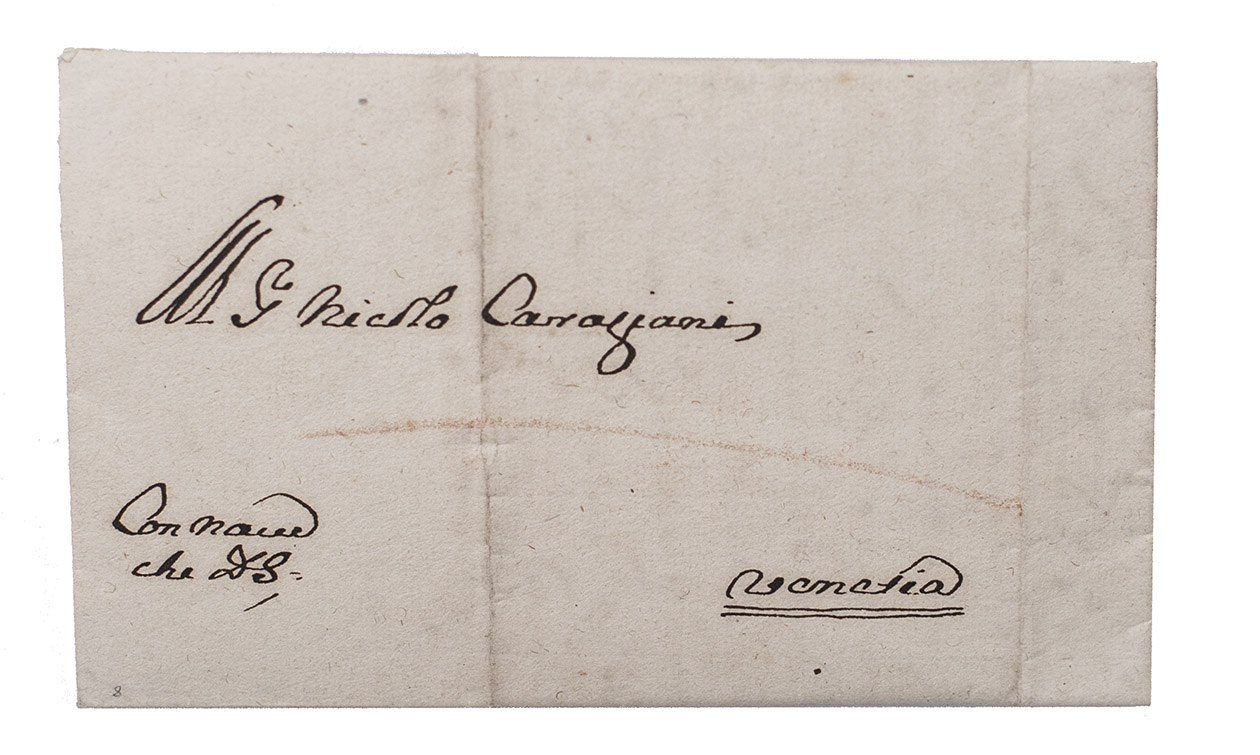 Al Sr Nicolo Caragiani
Con naue
che DS=
Venetia
8